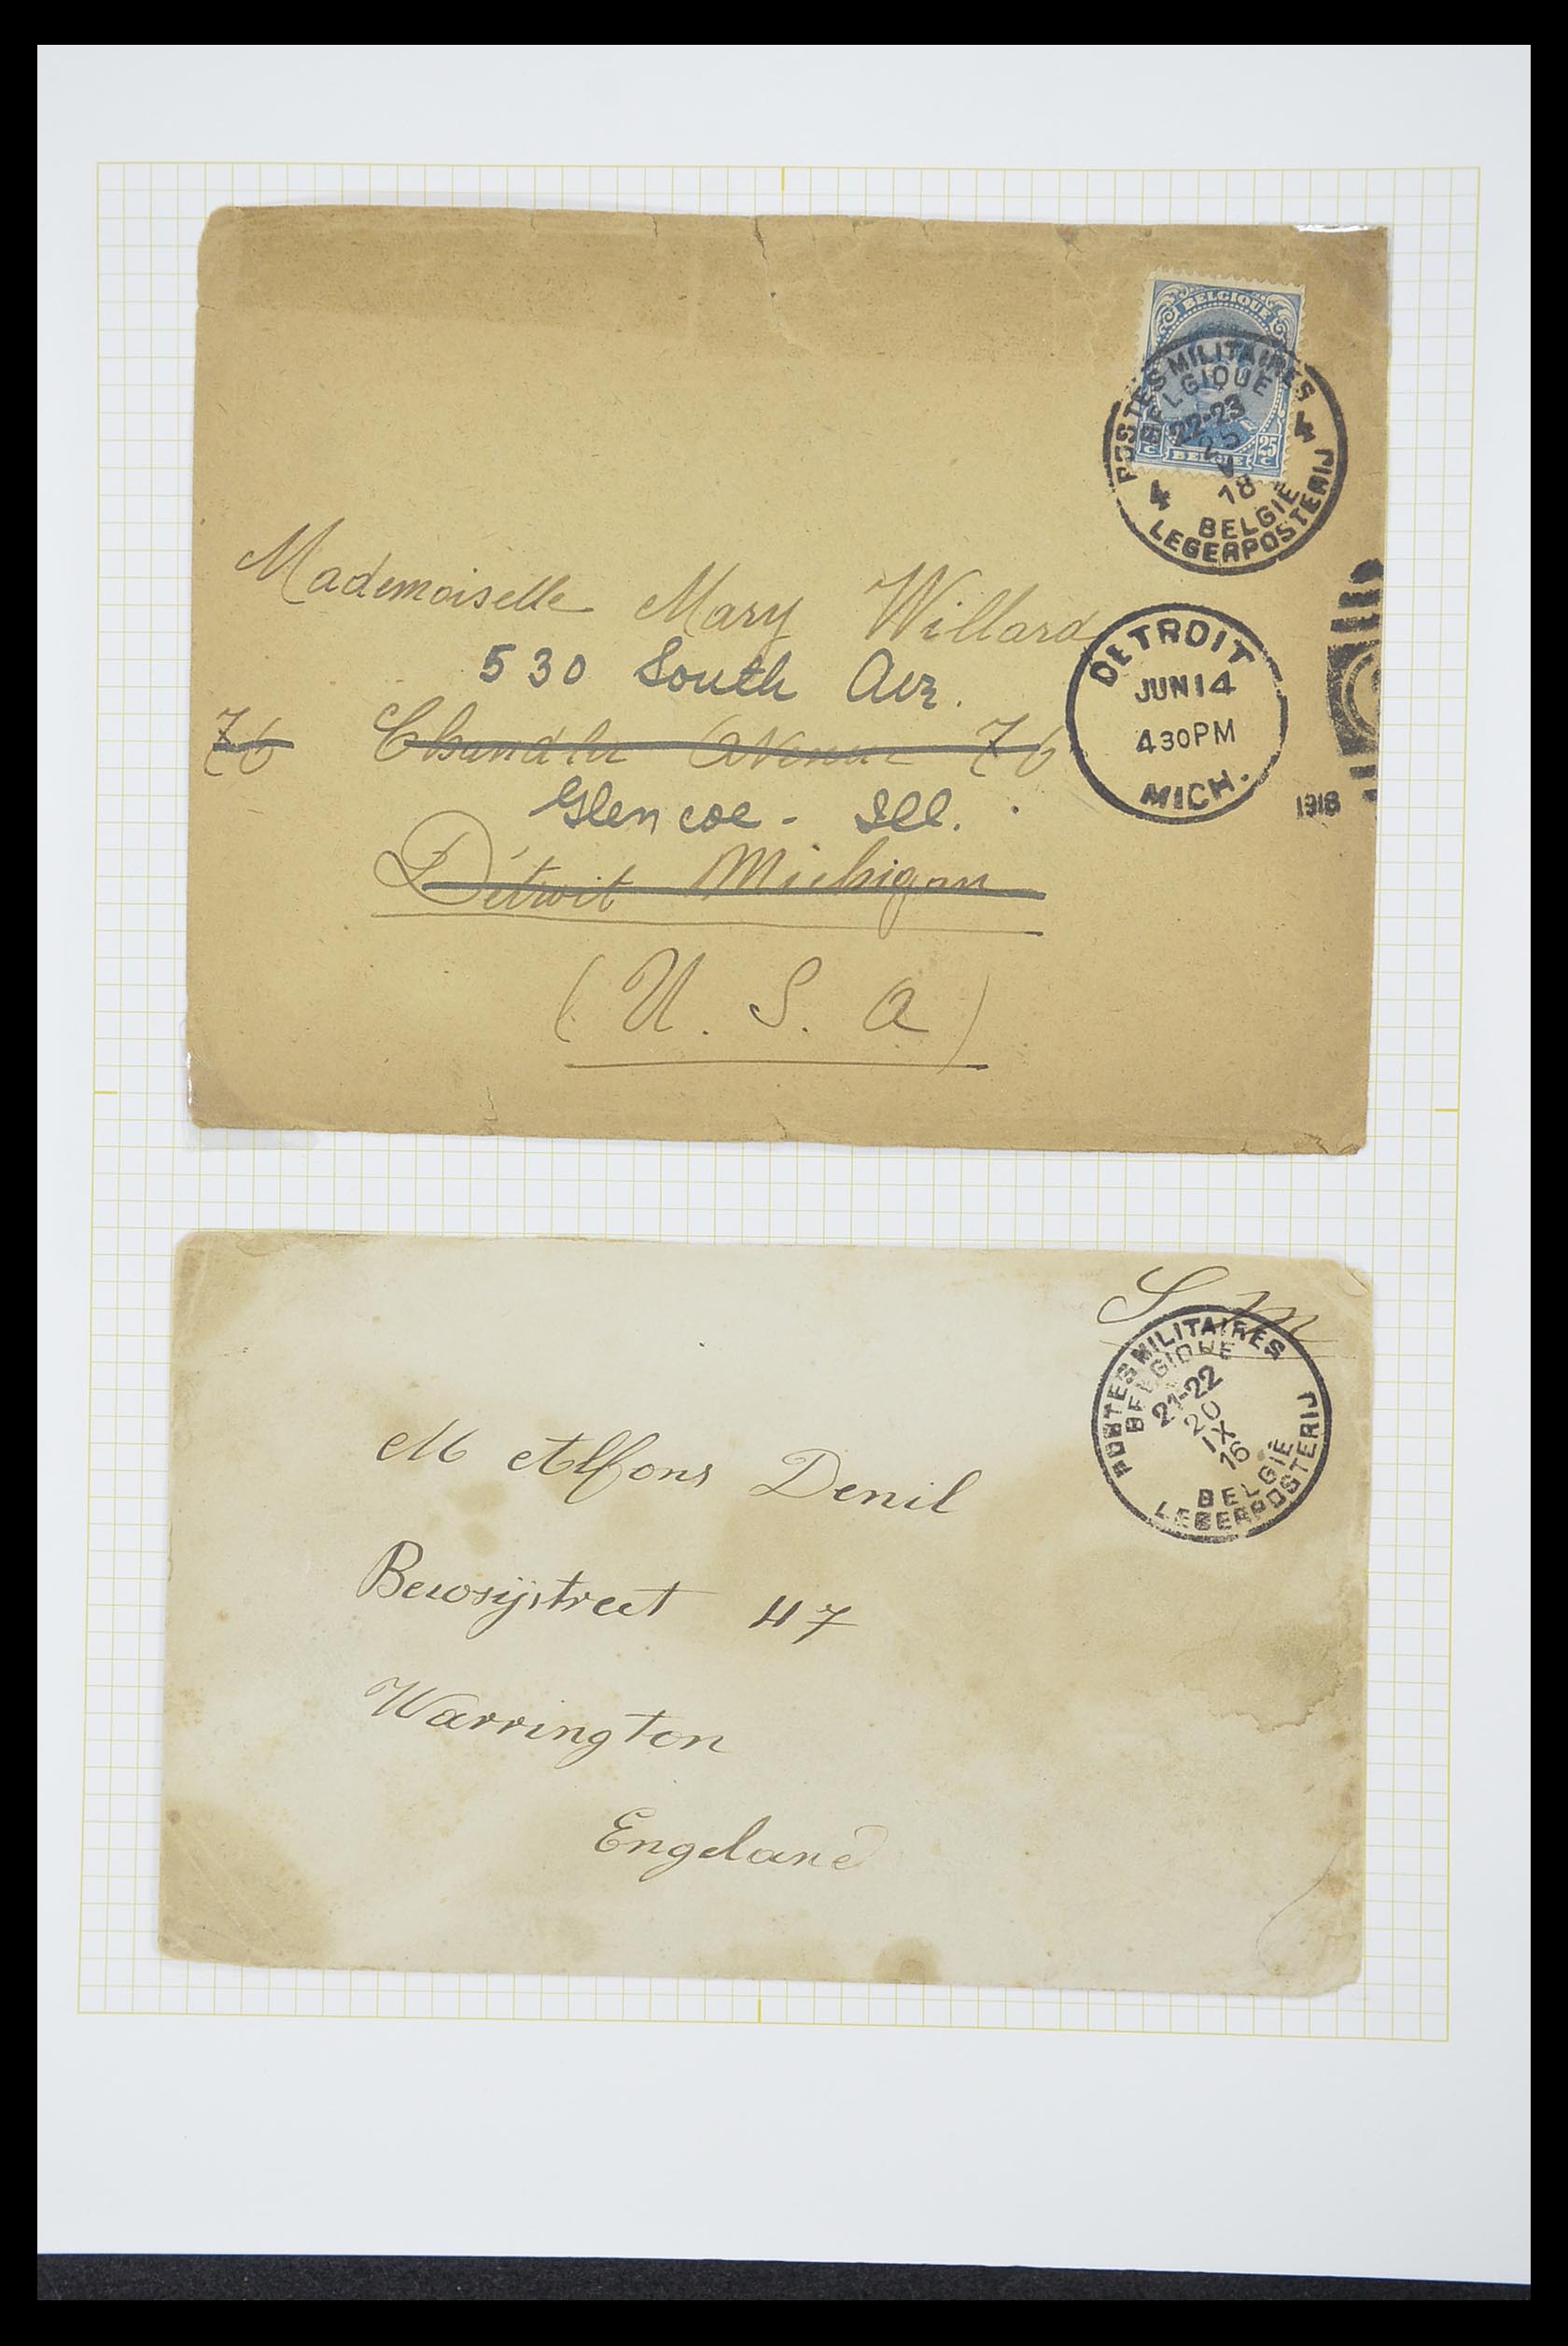 BELGIQUE
25 C
BELGIË
POSTES MILITAIRES
BELGIQUE
22-23
25
V
18
4 4
BELGIË
LEGERPOSTERIJ
Mademoiselle Mary Willard
530 South Ave.
76 Chandler Avenue 76
Glencoe - Ill.
Détroit Michigan
(U. S. A)
DETROIT
JUN 14
430 PM
MICH.
1918
S M
POSTES MILITAIRES
BELGIQUE
21-22
20
IX
16
BELGIË
LEGERPOSTERIJ
M Alfons Denil
47
Warrington
Engeland